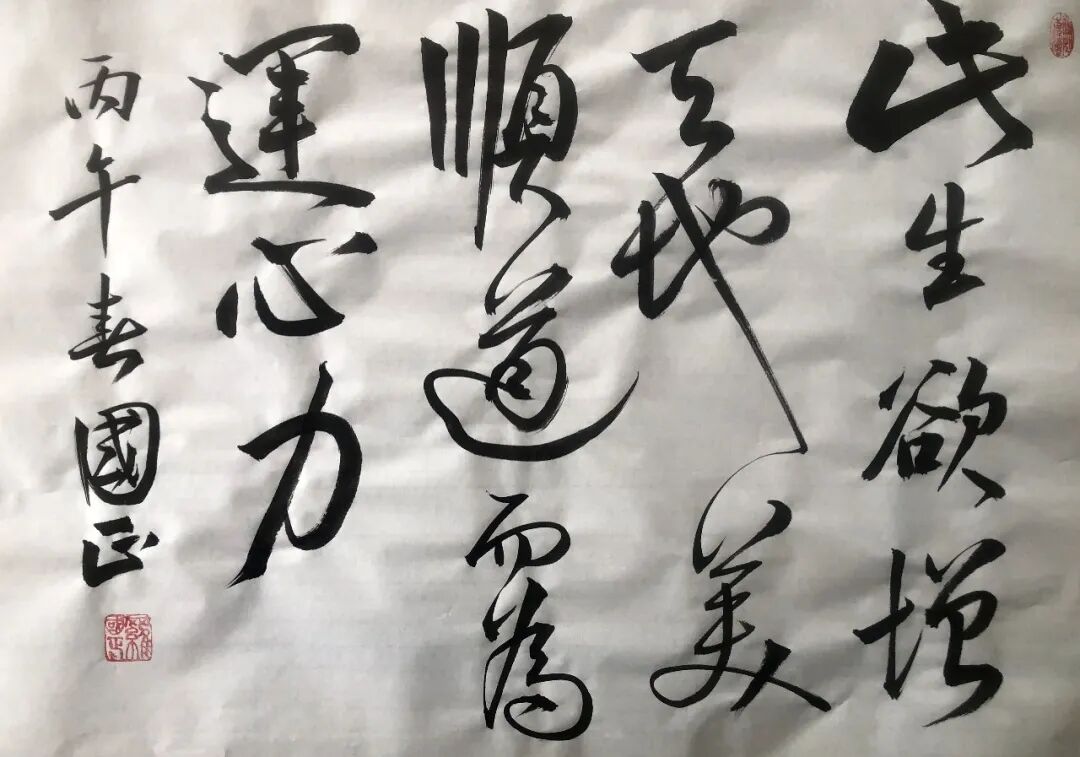 此生欲增
天地美
順道而為
運心力
丙午春國正